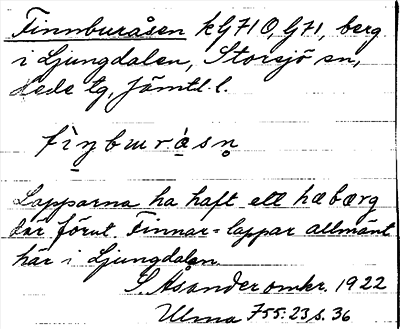 Finnburåsen kG710, G71, berg
i Ljungdalen, Storsjö sn,
Hede tg, Jämtl. l.
fìn̥bɯrásn̥
Lapparna ha haft ett häbärg
där förut. Finnar = lappar allmänt
här i Ljungdalen
S. Åsander omkr. 1922
Ulma 755:23, s. 36